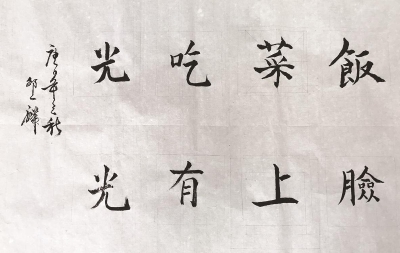 飯菜吃光
臉上有光
庚子年之秋